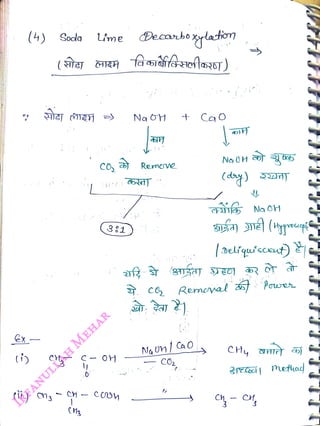 (4) Soda Lime Decarboxylation ⇒
(सोडा लाइम विकार्बोक्सिलीकरण)
∵ सोडा लाइम ⇒ NaOH + CaO
काम काम
CO₂ को Remove करना
NaOH को शुष्क (dry) रखना
3:1
क्योंकि NaOH
आर्द्रता ग्राही (Hygroscopic
/Deliquiscent) है।
यदि ये आर्द्रता ग्रहण कर ले तो
ये CO₂ Removal की Power
खो देता है।
Ex —
(i) CH₃ – C – OH NaOH/CaO → CH₄ बनाने का
O – CO₂ अच्छा Method
(ii) CH₃ – CH – COOH " → CH₃ – CH₃
CH₃
IRFANULLAH MEHAR